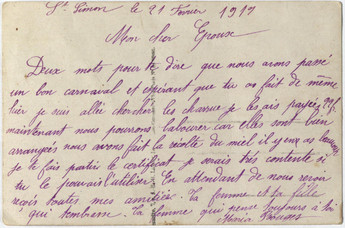 St Simon le 21 Février 1917
Mon cher Epouse
Deux mots pour te dire que nous avons passé
un bon carnaval et espérant que tu as fait de même
hier je suis allée chercher les charrue je les ais payée
maintenant nous pourrons labourer car elle sont bien
arrangées nous avons fait la récolte du miel il y en a
je te fais partir le certificat je serais très contente si
tu le pouvais l'utiliser. En attendant de nous revoir
reçois toutes mes amitiés. Ta femme et ta fille
qui tembrasse. Ta femme qui pense toujours à toi
Maria